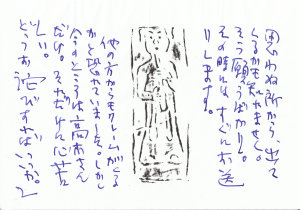 思わぬ所から、出て
くるかも知れません。
そう願うばかり。
その時には、すぐにお送
りします。
他の方からもクレームがくる
かと恐れていました。しかし
今のところは高木さん
だけ。それだけに心苦
しい。
どうお詫びすればいいか。